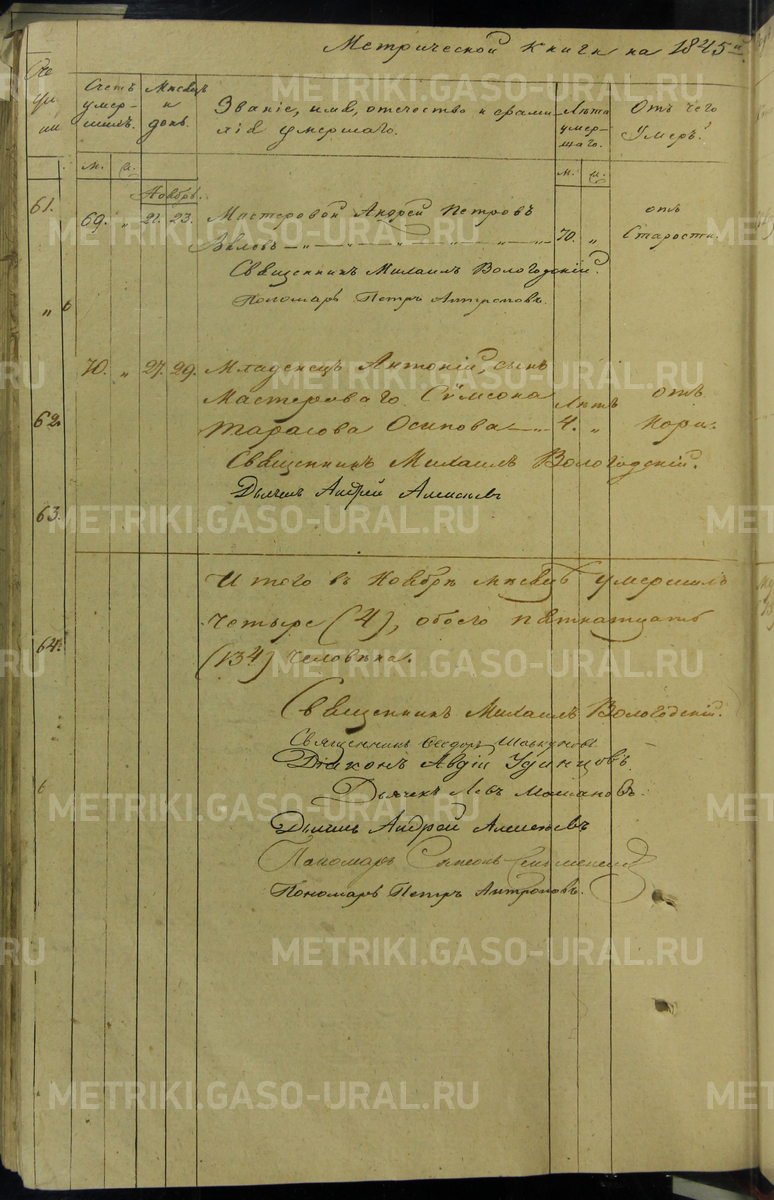 Метрической книги на 1845й
Счетъ умер-шихъ.
Мѣсяцъ и день.
Званіе, имя, отечество и фами-
лія умершаго.
Лѣта умер-шаго.
Отъ чего умеръ?
м. ж.
м. ж.
Ноябрь.
61.
69. „ 21. 23. Мастеровой Андрей Петровъ
70. „
отъ Старости.
Священникъ Михаилъ Вологодскій.
Пономарь Петръ Антроповъ.
70. „ 27. 29. Младенецъ Антоній, сынъ
Мастероваго Сѵмеона
Тарасова Осипова
Лѣтъ 4. „
отъ Кори.
62.
Священникъ Михаилъ Вологодскій.
Дьячекъ Андрей
63.
Итого въ Ноябрѣ мѣсяцѣ умершихъ
четыре (4), обоего
(134) человѣка.
64.
Священникъ Михаилъ Вологодскій.
Священникъ Ѳеодоръ
Діаконъ Авдій Удинцовъ.
Дьячекъ Левъ
Дьячекъ Андрей
Пономарь Симеонъ
Пономарь Петръ Антроповъ.
METRIKI.GASO-URAL.RU